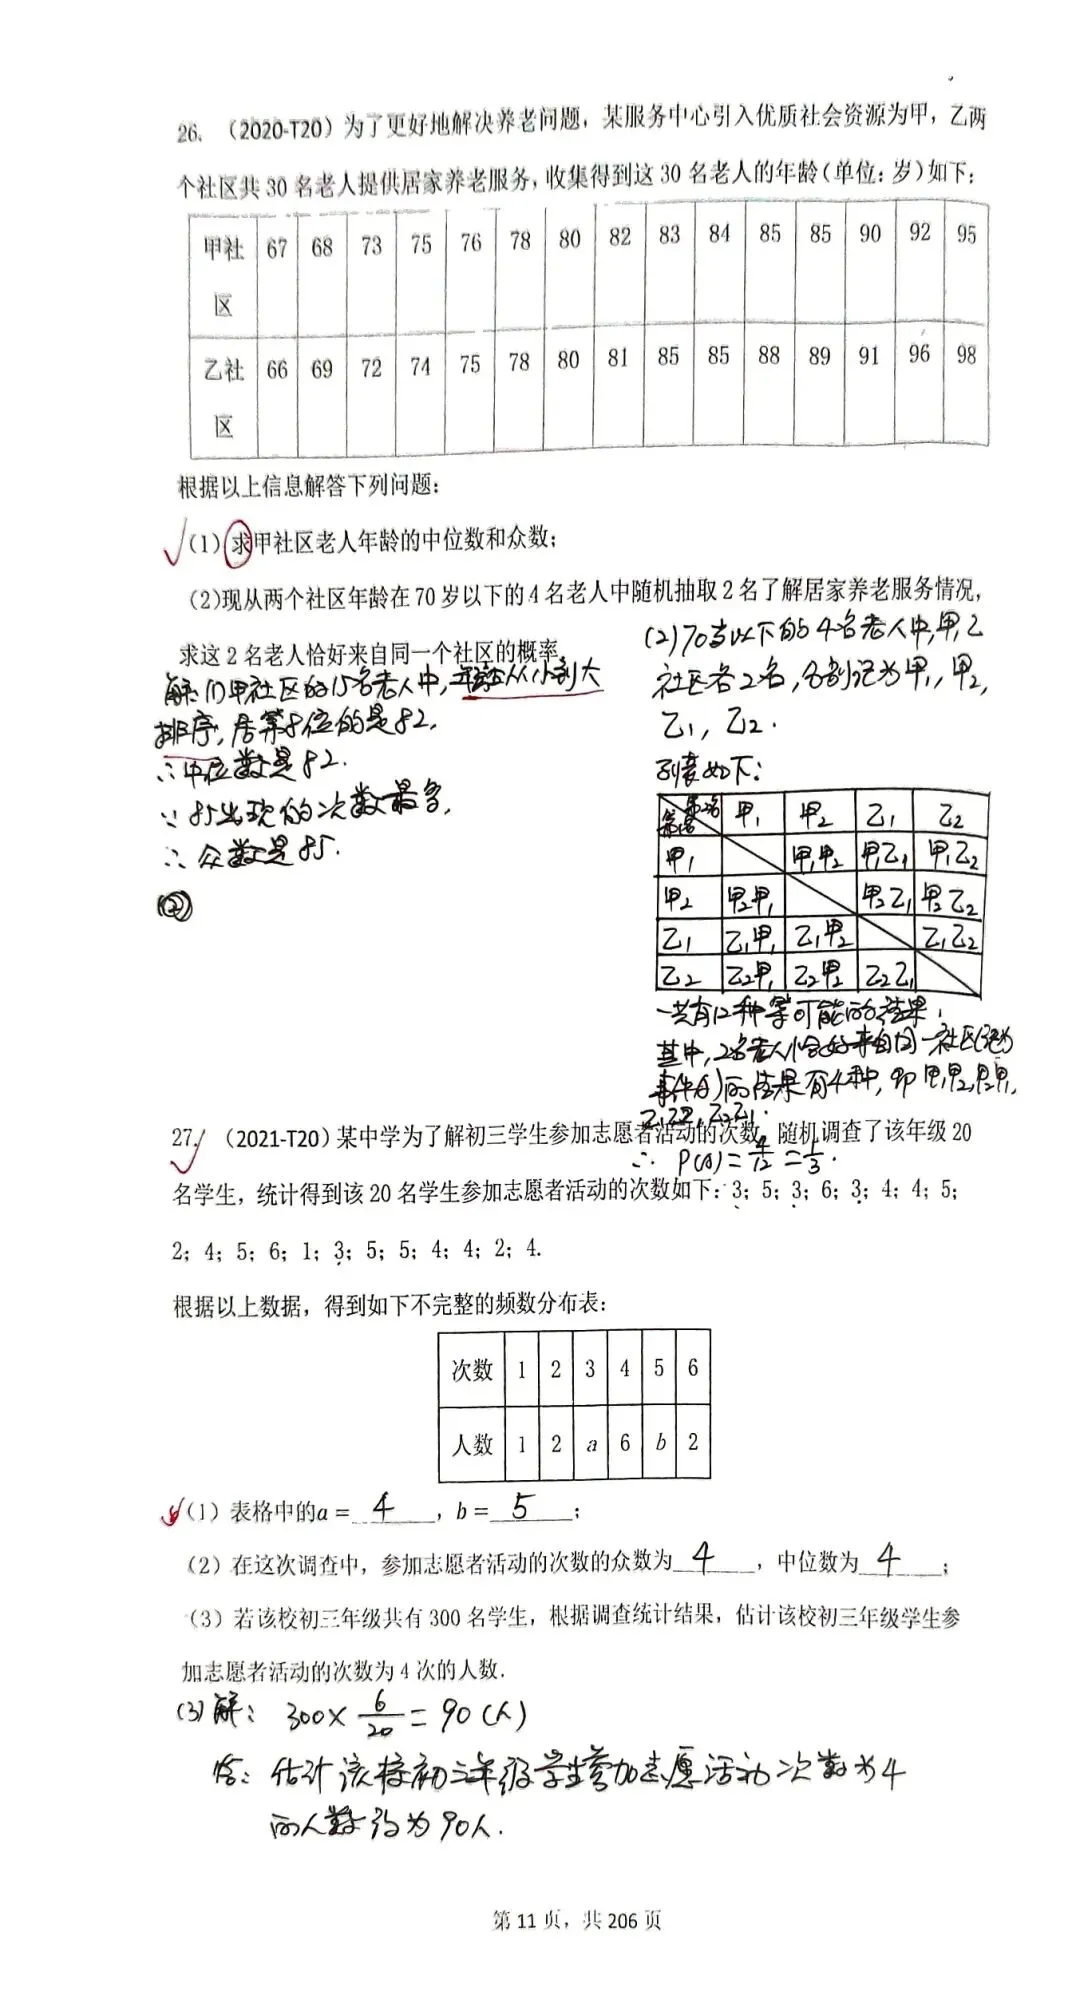 26. （2020-T20）为了更好地解决养老问题，某服务中心引入优质社会资源为甲，乙两
个社区共 30 名老人提供居家养老服务，收集得到这 30 名老人的年龄（单位：岁）如下：
甲社区 67 68 73 75 76 78 80 82 83 84 85 85 90 92 95
乙社区 66 69 72 74 75 78 80 81 85 85 88 89 91 96 98
根据以上信息解答下列问题：
(1) 求甲社区老人年龄的中位数和众数；
(2)现从两个社区年龄在 70 岁以下的 4 名老人中随机抽取 2 名了解居家养老服务情况，
求这 2 名老人恰好来自同一个社区的概率.
解：(1)甲社区的15名老人中，年龄从小到大
排序，居第8位的是82.
∴中位数是82.
∵85出现的次数最多，
∴众数是85.
(2)70岁以下的4名老人中，甲，乙
社区各2名，分别记为甲₁，甲₂，
乙₁，乙₂.
列表如下：
甲₁ 甲₂ 乙₁ 乙₂
甲₁ 甲₁甲₂ 甲₁乙₁ 甲₁乙₂
甲₂ 甲₂甲₁ 甲₂乙₁ 甲₂乙₂
乙₁ 乙₁甲₁ 乙₁甲₂ 乙₁乙₂
乙₂ 乙₂甲₁ 乙₂甲₂ 乙₂乙₁
一共有12种等可能的结果，
其中，2名老人恰好来自同一社区(记为
事件A)的结果有4种，即甲₁甲₂，甲₂甲₁，
乙₁乙₂，乙₂乙₁.
∴ P(A)=4/12=1/3.
27. （2021-T20）某中学为了解初三学生参加志愿者活动的次数，随机调查了该年级 20
名学生，统计得到该 20 名学生参加志愿者活动的次数如下：3；5；3；6；3；4；4；5；
2；4；5；6；1；3；5；5；4；4；2；4.
根据以上数据，得到如下不完整的频数分布表：
次数 1 2 3 4 5 6
人数 1 2 a 6 b 2
（1）表格中的a = 4，b = 5；
（2）在这次调查中，参加志愿者活动的次数的众数为 4，中位数为 4；
（3）若该校初三年级共有 300 名学生，根据调查统计结果，估计该校初三年级学生参
加志愿者活动的次数为 4 次的人数.
(3)解：300×6/20=90(人)
答：估计该校初三年级学生参加志愿活动次数为4
的人数约为90人.
第 11 页，共 206 页